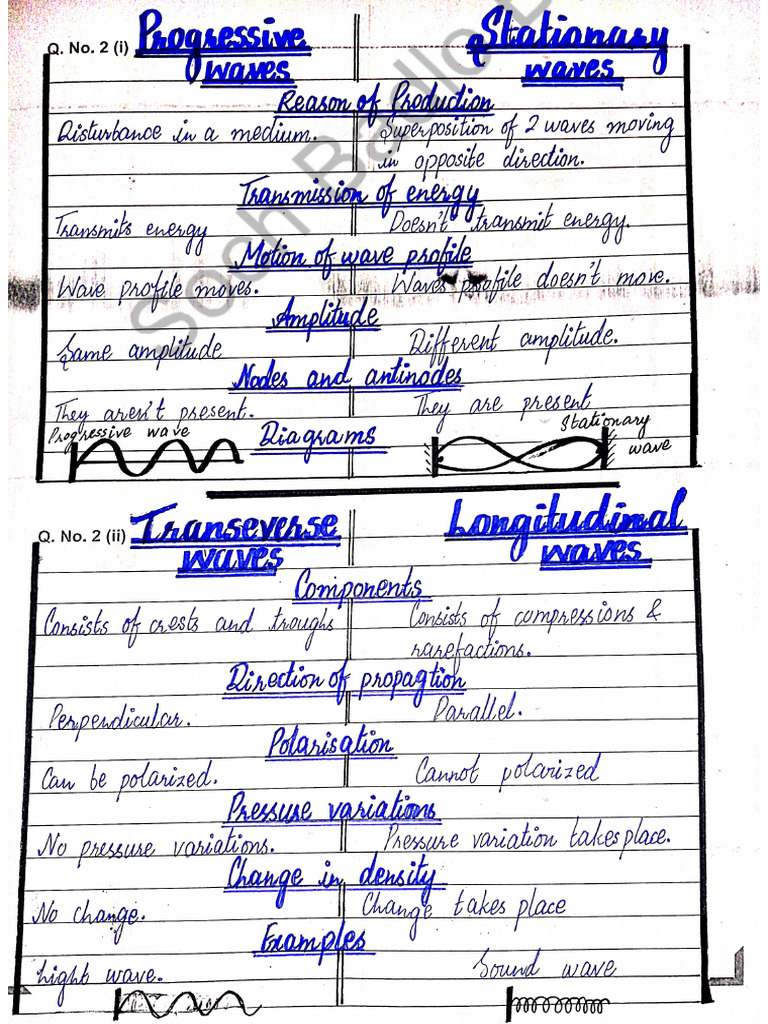 Q. No. 2 (i) Progressive Stationary
waves waves
Reason of Production
Disturbance in a medium. Superposition of 2 waves moving
in opposite direction.
Transmission of energy
Transmits energy Doesn't transmit energy.
Motion of wave profile
Wave profile moves. Waves profile doesn't move.
Amplitude
Same amplitude Different amplitude.
Nodes and antinodes
They aren't present. They are present
Progressive wave Diagrams Stationary
wave
Q. No. 2 (ii) Transeverse Longitudimal
waves waves
Components
Consists of crests and troughs Consists of compressions &
rarefactions.
Direction of propagtion
Perpendicular. Parallel.
Polarisation
Can be polarized. Cannot polarized
Pressure variations
No pressure variations. Pressure variation takes place.
Change in density
No change. Change takes place
Examples
Light wave. Sound wave
Soch Badlo